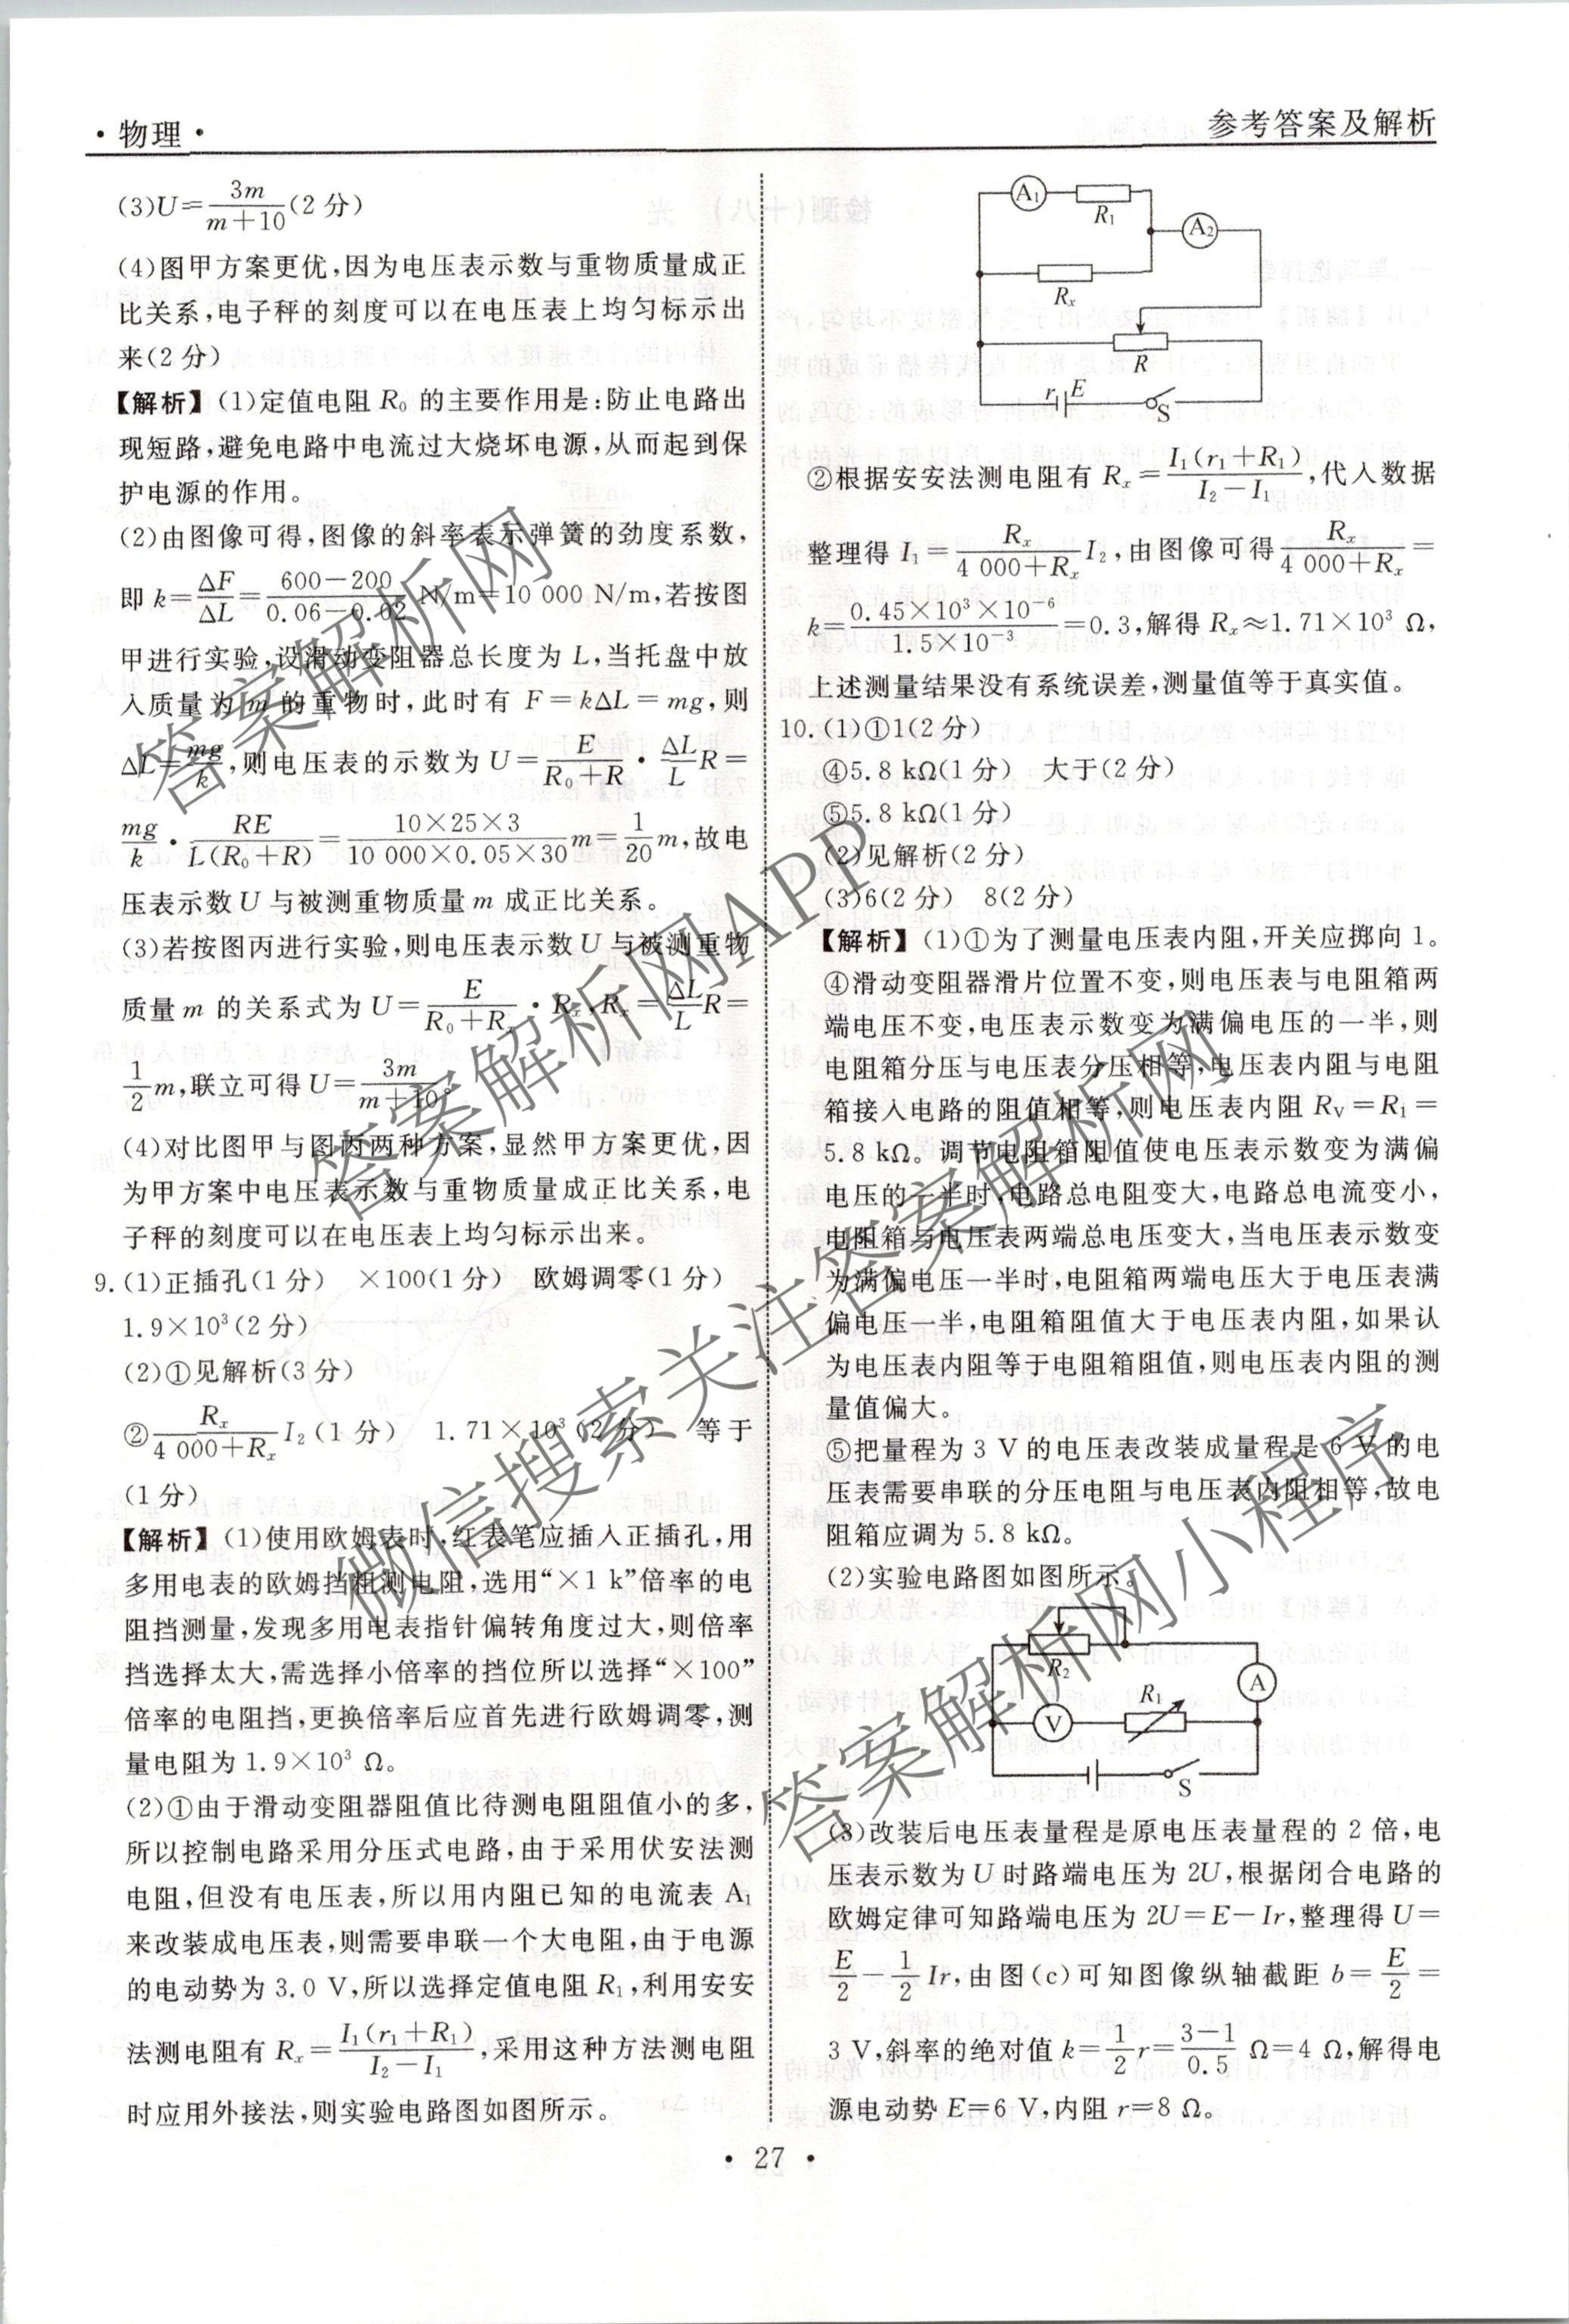 ·物理·
参考答案及解析
(3)U=3m/(m+10)(2分)
(4)图甲方案更优,因为电压表示数与重物质量成正
比关系,电子秤的刻度可以在电压表上均匀标示出
来(2分)
【解析】(1)定值电阻R₀的主要作用是:防止电路出
现短路,避免电路中电流过大烧坏电源,从而起到保
护电源的作用。
(2)由图像可得,图像的斜率表示弹簧的劲度系数,
即k=ΔF/ΔL=(600-200)/(0.06-0.02) N/m=10 000 N/m,若按图
甲进行实验,设滑动变阻器总长度为L,当托盘中放
入质量为m的重物时,此时有F=kΔL=mg,则
ΔL=mg/k,则电压表的示数为U=E/(R₀+R)·ΔL/L R=
mg/k·RE/(L(R₀+R))=(10×25×3)/(10 000×0.05×30)m=1/20 m,故电
压表示数U与被测重物质量m成正比关系。
(3)若按图丙进行实验,则电压表示数U与被测重物
质量m的关系式为U=E/(R₀+Rₓ)·Rₓ,Rₓ=ΔL/L R=
1/2 m,联立可得U=3m/(m+10)。
(4)对比图甲与图丙两种方案,显然甲方案更优,因
为甲方案中电压表示数与重物质量成正比关系,电
子秤的刻度可以在电压表上均匀标示出来。
9.(1)正插孔(1分) ×100(1分) 欧姆调零(1分)
1.9×10³(2分)
(2)①见解析(3分)
②Rₓ/(4 000+Rₓ) I₂(1分) 1.71×10³(2分) 等于
(1分)
【解析】(1)使用欧姆表时,红表笔应插入正插孔,用
多用电表的欧姆挡粗测电阻,选用“×1 k”倍率的电
阻挡测量,发现多用电表指针偏转角度过大,则倍率
挡选择太大,需选择小倍率的挡位所以选择“×100”
倍率的电阻挡,更换倍率后应首先进行欧姆调零,测
量电阻为1.9×10³ Ω。
(2)①由于滑动变阻器阻值比待测电阻阻值小的多,
所以控制电路采用分压式电路,由于采用伏安法测
电阻,但没有电压表,所以用内阻已知的电流表A₁
来改装成电压表,则需要串联一个大电阻,由于电源
的电动势为3.0 V,所以选择定值电阻R₁,利用安安
法测电阻有Rₓ=I₁(r₁+R₁)/(I₂-I₁),采用这种方法测电阻
时应用外接法,则实验电路图如图所示。
A₁
R₁
A₂
Rₓ
R
r E
S
②根据安安法测电阻有Rₓ=I₁(r₁+R₁)/(I₂-I₁),代入数据
整理得I₁=Rₓ/(4 000+Rₓ) I₂,由图像可得Rₓ/(4 000+Rₓ)=
k=(0.45×10³×10⁻⁶)/(1.5×10⁻³)=0.3,解得Rₓ≈1.71×10³ Ω,
上述测量结果没有系统误差,测量值等于真实值。
10.(1)①1(2分)
④5.8 kΩ(1分) 大于(2分)
⑤5.8 kΩ(1分)
(2)见解析(2分)
(3)6(2分) 8(2分)
【解析】(1)①为了测量电压表内阻,开关应掷向1。
④滑动变阻器滑片位置不变,则电压表与电阻箱两
端电压不变,电压表示数变为满偏电压的一半,则
电阻箱分压与电压表分压相等,电压表内阻与电阻
箱接入电路的阻值相等,则电压表内阻R_V=R₁=
5.8 kΩ。调节电阻箱阻值使电压表示数变为满偏
电压的一半时,电路总电阻变大,电路总电流变小,
电阻箱与电压表两端总电压变大,当电压表示数变
为满偏电压一半时,电阻箱两端电压大于电压表满
偏电压一半,电阻箱阻值大于电压表内阻,如果认
为电压表内阻等于电阻箱阻值,则电压表内阻的测
量值偏大。
⑤把量程为3 V的电压表改装成量程是6 V的电
压表需要串联的分压电阻与电压表内阻相等,故电
阻箱应调为5.8 kΩ。
(2)实验电路图如图所示。
R₂
A
R₁
V
S
(3)改装后电压表量程是原电压表量程的2倍,电
压表示数为U时路端电压为2U,根据闭合电路的
欧姆定律可知路端电压为2U=E-Ir,整理得U=
E/2-1/2 Ir,由图(c)可知图像纵轴截距b=E/2=
3 V,斜率的绝对值k=1/2 r=(3-1)/0.5 Ω=4 Ω,解得电
源电动势E=6 V,内阻r=8 Ω。
·27·
答案解析网
答案解析网APP
微信搜索关注答案解析网
答案解析网小程序